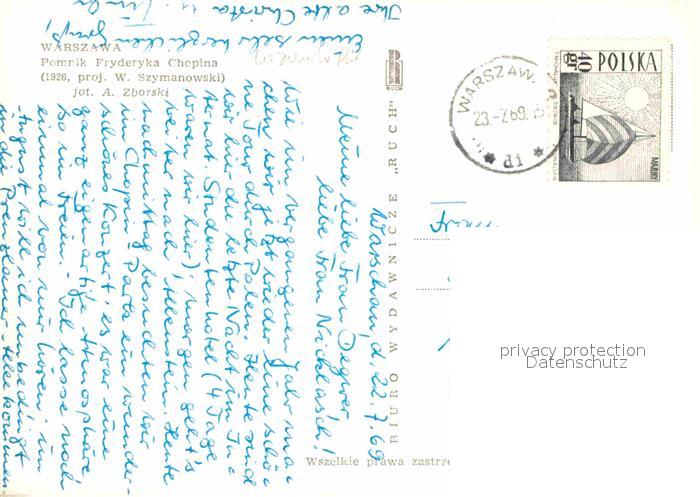 WARSZAWA
Pomnik Fryderyka Chopina
(1926, proj. W. Szymanowski)
fot. A. Zborski
BIURO WYDAWNICZE „RUCH"
RUCH
Wszelkie prawa zastrze
WARSZAW
23.-7.69.15
POLSKA
40 gr
MAZURY
Warschau, d. 22.7.69
Meine liebe Frau Degner,
liebe Frau Nicklasch!
Wie im vergangenen Jahr ma-
chen wir jetzt wieder eine schö-
ne Tour durch Polen. Heute sind
wir hier die letzte Nacht im In-
ternat. Studentenhotel (4 Tage
waren wir hier); morgen geht's
weiter nach Allenstein. Heute
nachmittag besuchten wir
im Chopin-Park ein wunder-
schönes Konzert; es war eine
ganz eigenartige Atmosphäre
so im Freien. - Ich lasse noch
einmal von mir hören; im
August will ich unbedingt
in die Prenzlauer Allee kommen
Einen sehr herzlichen Gruß,
Ihre alte Christa u.
privacy protection
Datenschutz